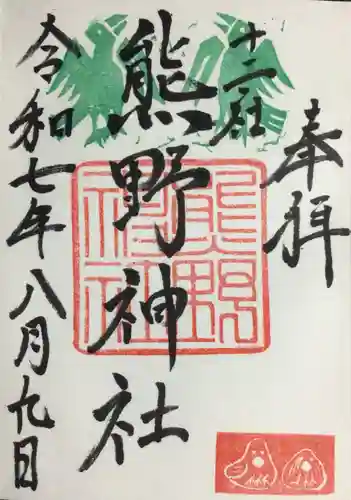 奉拝
十二社
熊野神社
令和七年八月九日
熊野
神社